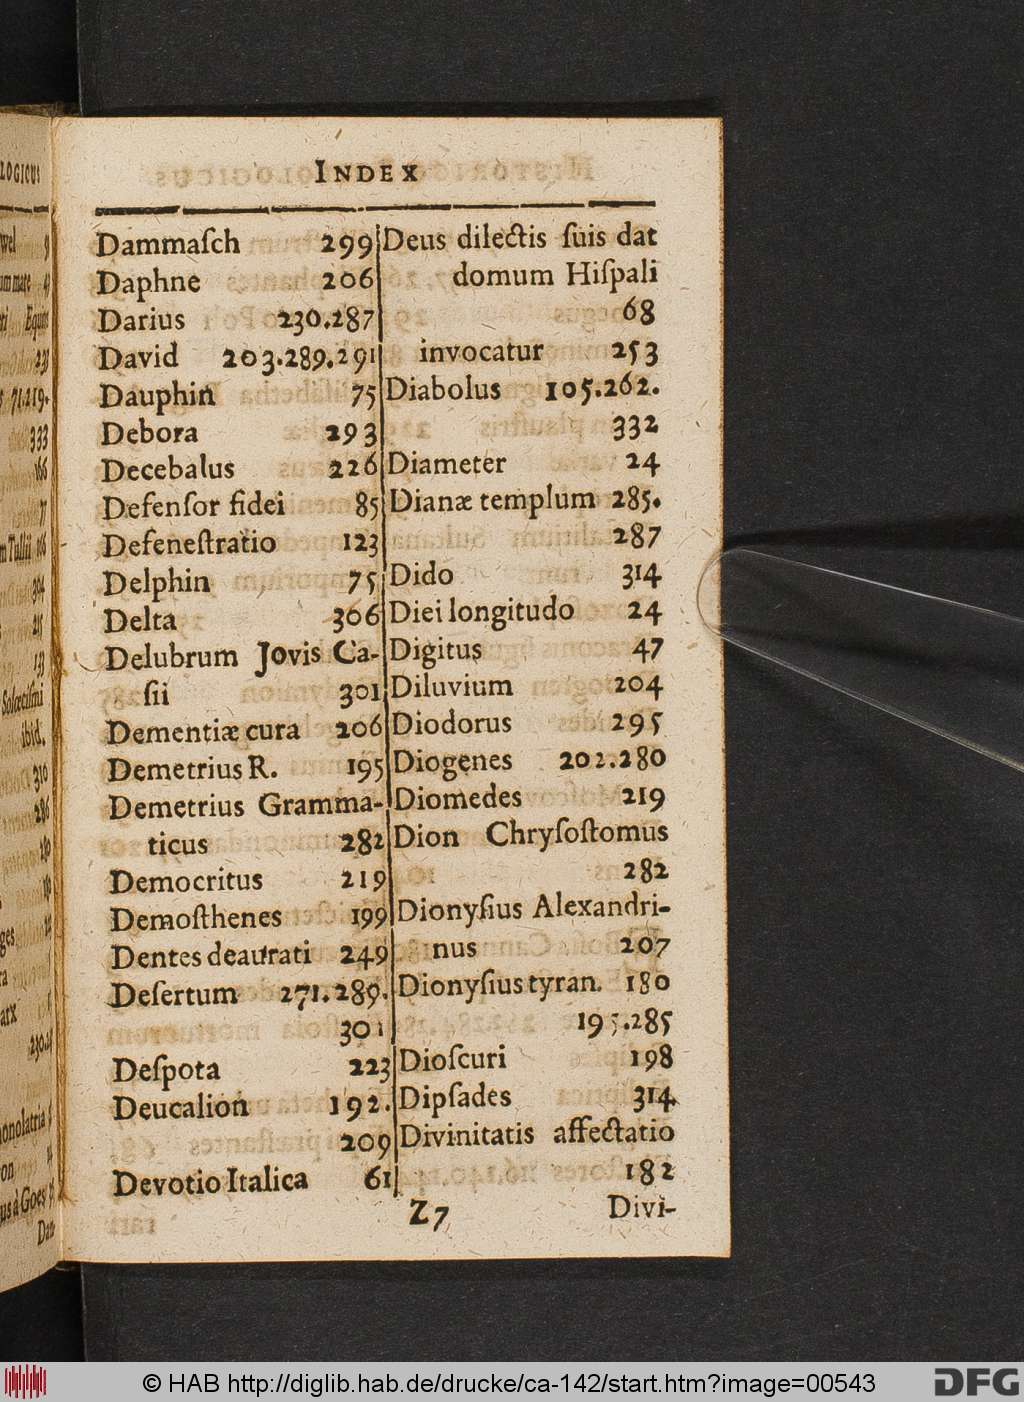 INDEX
Dammaſch 299
Daphne 206
Darius 230.287
David 203.289.291
Dauphin 75
Debora 293
Decebalus 226
Defenſor fidei 85
Defeneſtratio 123
Delphin 75
Delta 306
Delubrum Jovis Ca-
ſii 301
Dementiæ cura 206
Demetrius R. 195
Demetrius Gramma-
ticus 282
Democritus 219
Demoſthenes 199
Dentes deaurati 249
Deſertum 271.289.
301
Deſpota 223
Deucalion 192.
209
Devotio Italica 61
Deus dilectis ſuis dat
domum Hiſpali
68
invocatur 253
Diabolus 105.262.
332
Diameter 24
Dianæ templum 285.
287
Dido 314
Diei longitudo 24
Digitus 47
Diluvium 204
Diodorus 295
Diogenes 202.280
Diomedes 219
Dion Chryſoſtomus
282
Dionyſius Alexandri-
nus 207
Dionyſius tyran. 180
195.285
Dioſcuri 198
Dipſades 314
Divinitatis affectatio
182
Z7 Divi-
LOGICUS
wel 9
um mare
ti Equit
71.219.
333
166
77
m Tullii 106
304
215
153
Solœciſmi
ibid.
310
286
ges
arx
230.
monolatria
on
us à Goes
Dam
© HAB http://diglib.hab.de/drucke/ca-142/start.htm?image=00543
DFG